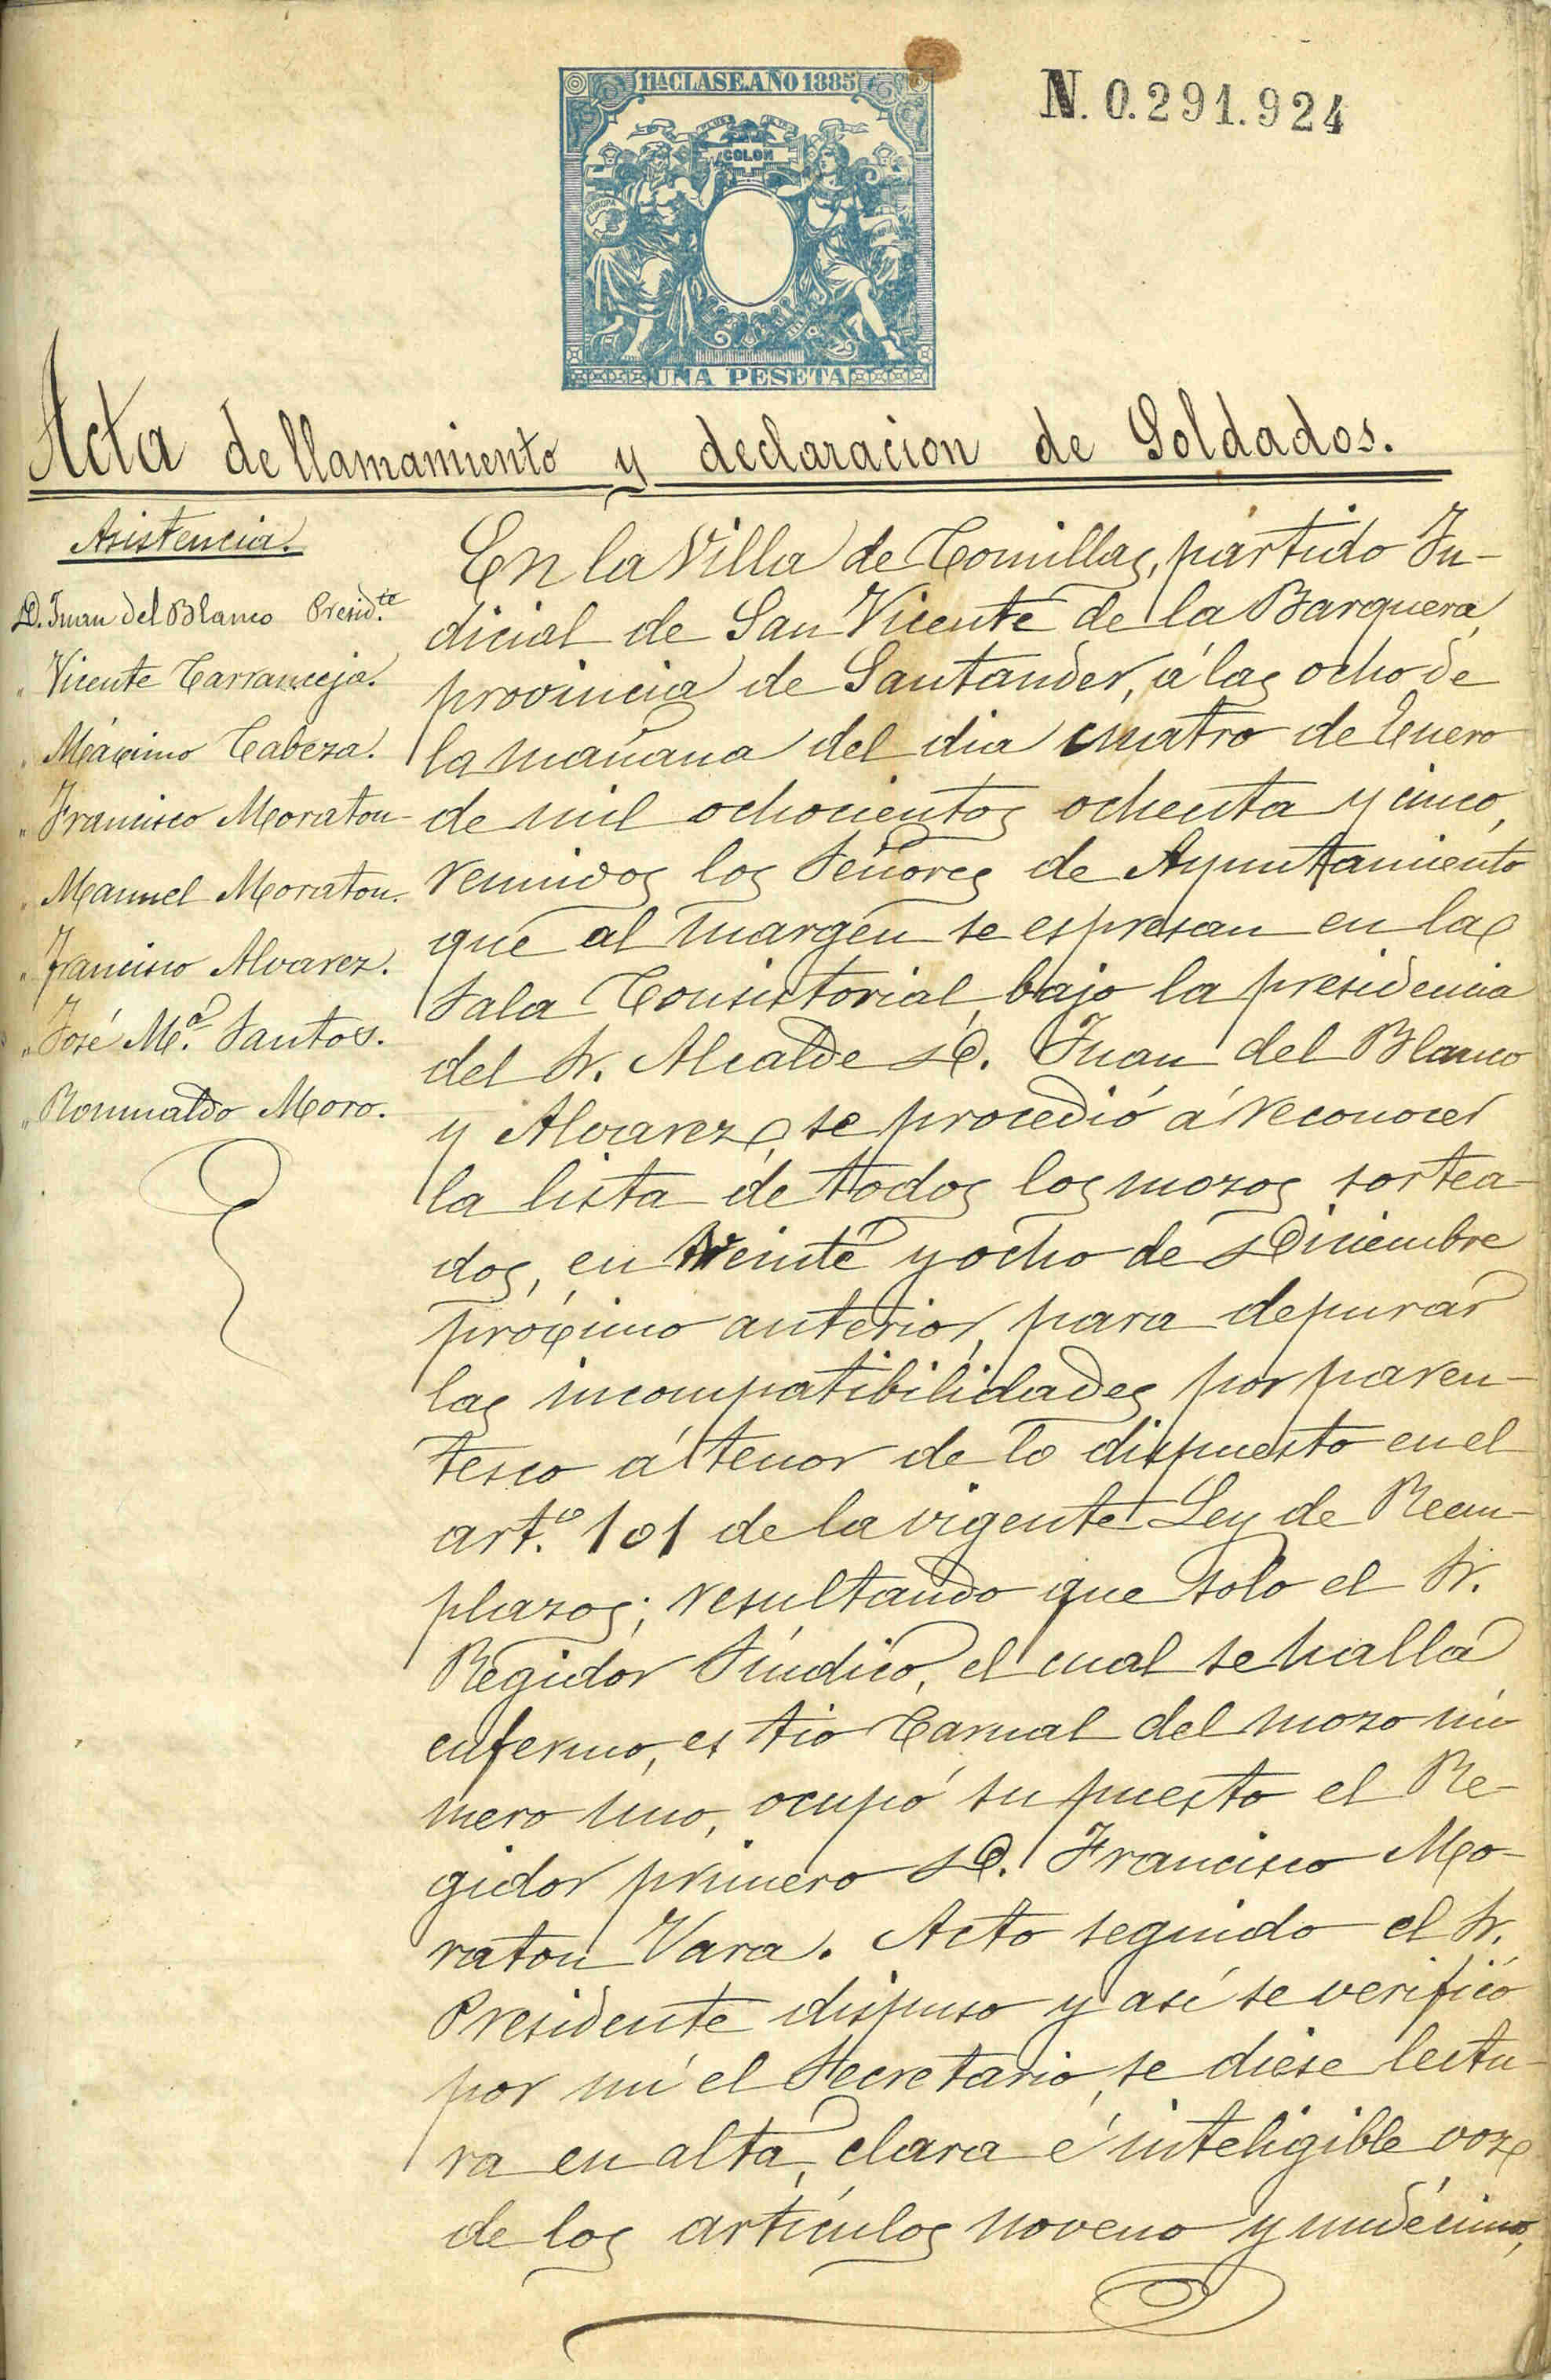 11ª CLASE. AÑO 1885
N. 0.291.924
PLUS ULTRA
COLON
EUROPA
UNA PESETA
Acta de llamamiento y declaracion de Soldados.
Asistencia.
D. Juan del Blanco Presid.te
" Vicente Carranceja.
" Máximo Cabeza.
" Francisco Moraton
" Manuel Moraton.
" Francisco Alvarez.
" José M.ª Santos.
" Romualdo Moro.
En la Villa de Comillas, partido Ju-
dicial de San Vicente de la Barquera,
provincia de Santander, á las ocho de
la mañana del dia cuatro de Enero
de mil ochocientos ochenta y cinco,
reunidos los Señores de Ayuntamiento
que al margen se espresan en la
Sala Consistorial, bajo la presidencia
del Sr. Alcalde D. Juan del Blanco
y Alvarez, se procedió á reconocer
la lista de todos los mozos sortea-
dos, en veinte y ocho de Diciembre
próximo anterior, para depurar
las incompatibilidades por paren-
tesco á tenor de lo dispuesto en el
art.º 101 de la vigente Ley de Reem-
plazos; resultando que solo el Sr.
Regidor Síndico, el cual se halla
enfermo, es tio Carnal del mozo nú
mero uno, ocupó su puesto el Re-
gidor primero D. Francisco Mo-
raton Vara. Acto seguido el Sr.
Presidente dispuso y así se verificó
por mí el Secretario, se diese lectu-
ra en alta, clara é inteligible voz
de los artículos noveno y undécimo,